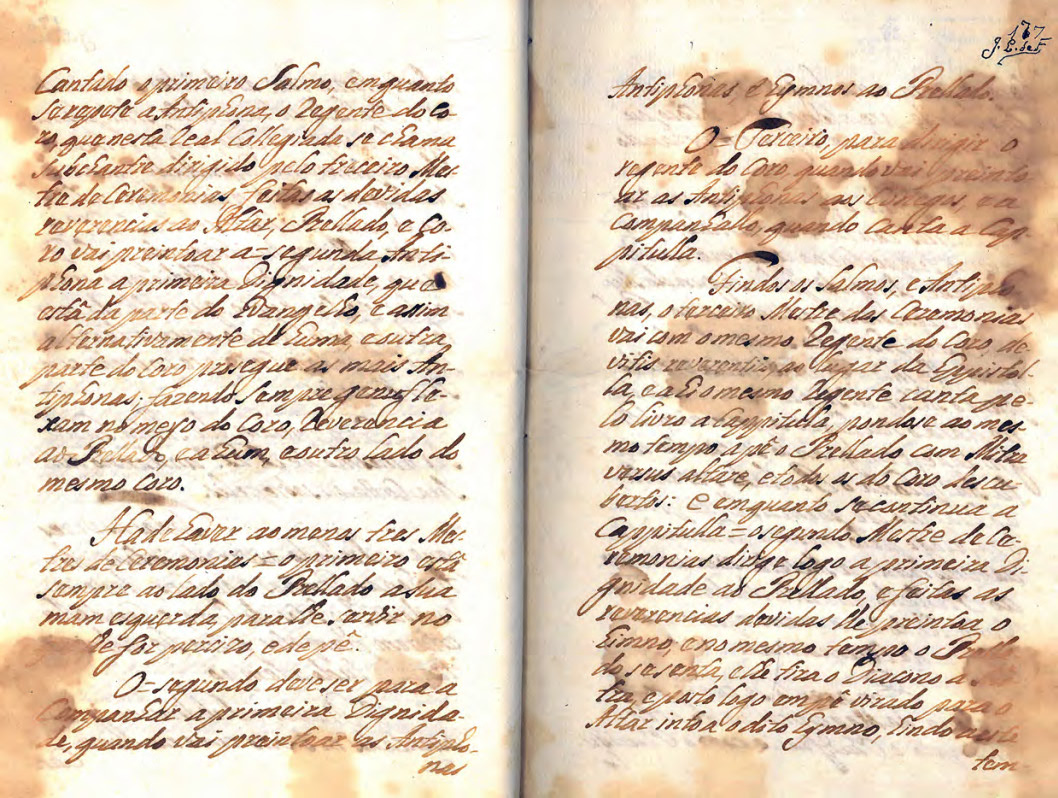 Cantado o primeiro Salmo, emquanto
se repete a Antiphona, o Regente do Co-
ro, que nesta Leal Collegiada se chama
subchantre dirigido pelo terceiro Mes-
tre de Ceremonias feitas as devidas
reverencias ao Altar, Prellado, e Co-
ro vai preintoar a = segunda Anti-
phona a primeira Dignidade, que
está da parte do Evangelho, e assim
alternativamente de huma e outra
parte do Coro prosegue as mais An-
tiphonas; fazendo sempre genufle-
xam no meyo do Coro, Reverencia
ao Prellado, e a hum, e outro lado do
mesmo Coro.
Ha de haver ao menos tres Mes-
tres de Ceremonias = o primeiro está
sempre ao lado do Prellado a sua
mam esquerda, para lhe servir no
que lhe for perciso, e de pê.
O = segundo deve ser para a
Companhar a primeira Dignida-
de, quando vai preintoar as Antipho-
nas
177
Antiphonas, e Hymnos ao Prellado.
O = Terceiro, para dirigir o
regente do Coro, quando vai preinto
ar as Antiphonas aos Conegos, e a
companhallo, quando canta a Cap-
pitulla.
Findos os Salmos, e Antipho-
nas, o terceiro Mestre das Ceremonias
vai com o mesmo Regente do Coro, de
vitis reverentiis ao lugar da Epistol-
la, e ahi o mesmo Regente canta pe-
lo livro a Cappitulla, pondose ao mes-
mo tempo a pê o Prellado com Mitra
versus altare, e todos os do Coro descu-
bertos: e emquanto se continua a
Cappitulla = o segundo Mestre de Ce-
remonias dirige logo a primeira Di-
gnidade ao Prellado, e feitas as
reverencias devidas lhe preintoa o
Himno, e no mesmo tempo o Prella-
do se senta, e lhe tira o Diacono a Mi-
tra, e posto logo em pê virado para o
Altar intoa o dito Hymno, hindo neste
tem-